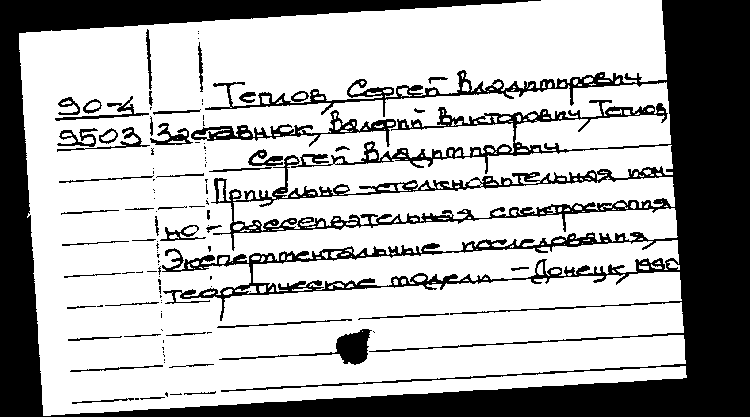 90-4 Теплов, Сергей Владимирович
9503 Заставнюк, Валерий Викторович, Теплов,
Сергей Владимирович.
Прицельно-столкновительная ион-
но-рассеивательная спектроскопия
Экспериментальные исследования,
теоретические модели. - Донецк, 1990